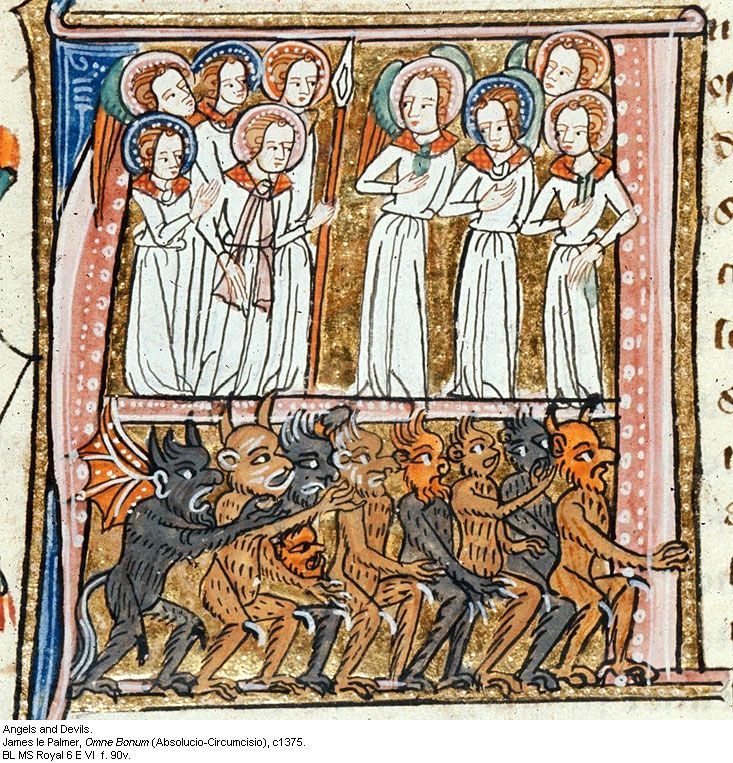 Angels and Devils.
James le Palmer, Omne Bonum (Absolucio-Circumcisio), c1375.
BL MS Royal 6 E VI f. 90v.